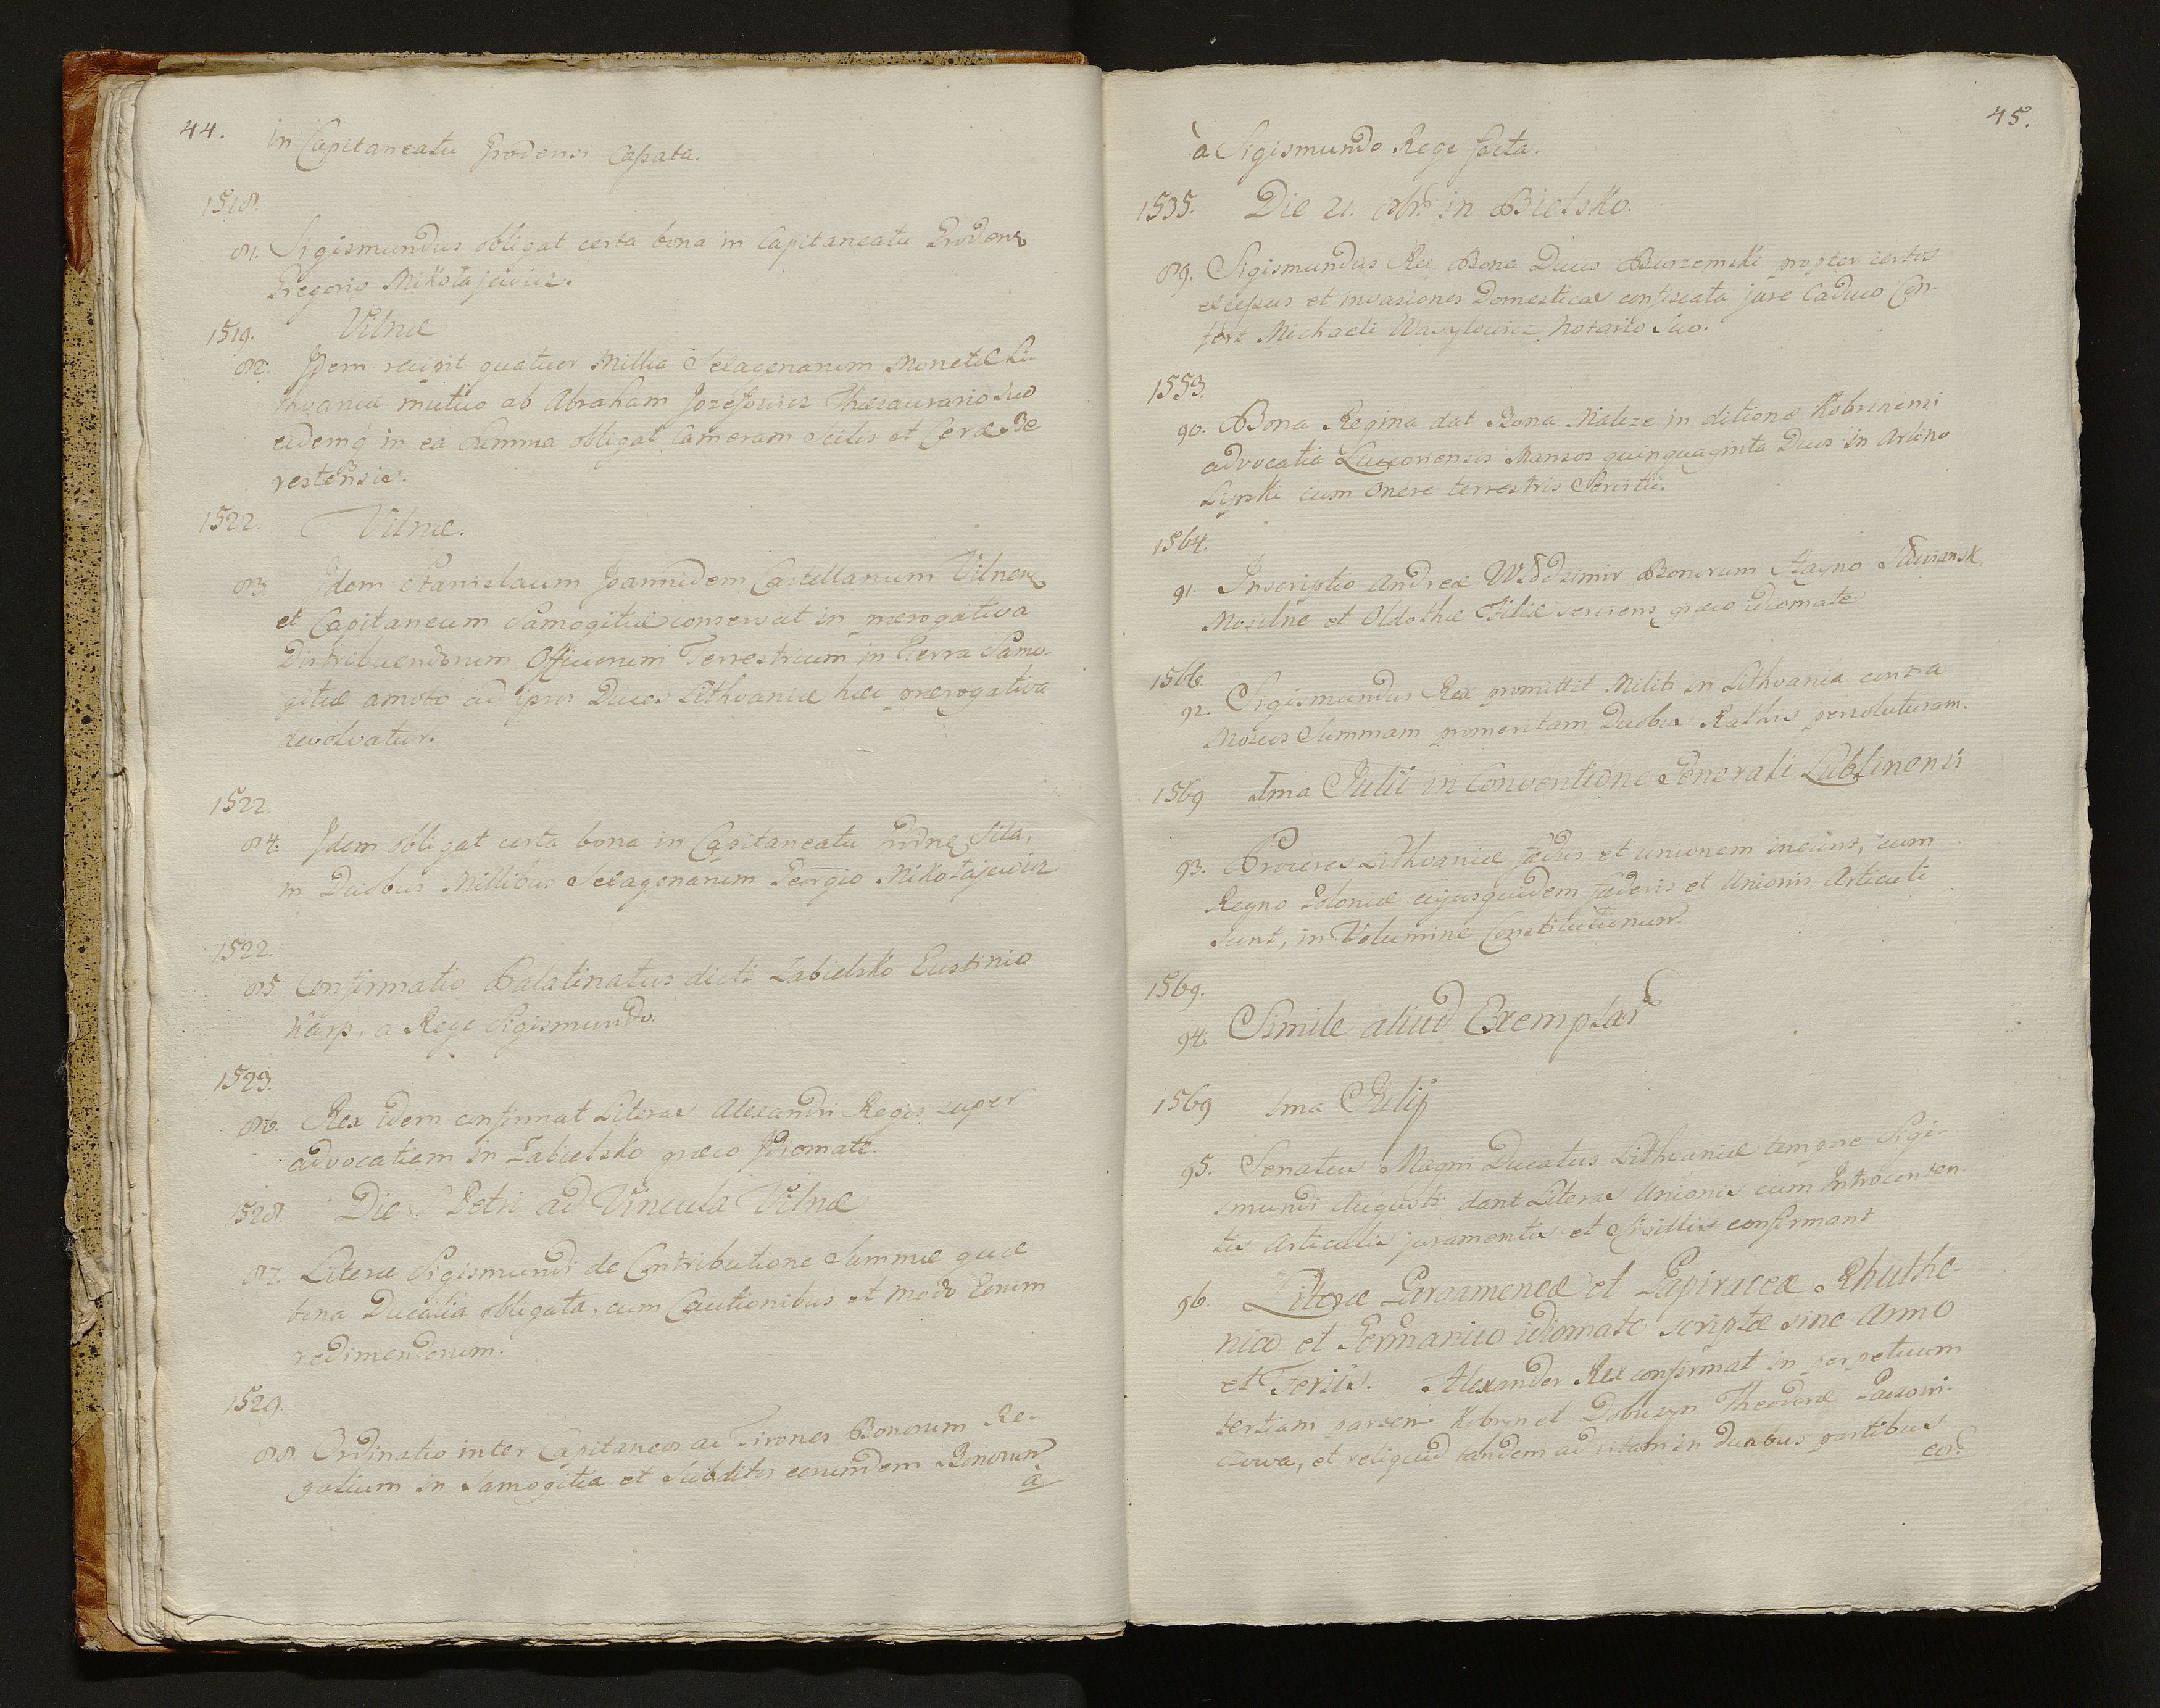 44.
in Capitaneatu Grodensi Cassata.
1518.
81. Sigismundus obligat certa bona in Capitaneatu Grodens
Gregorio Mikołajewicz.
1519. Vilnæ
82. Idem recipit quatuor Millia Sexagenarum Monetæ Li-
thvaniæ mutuo ab Abraham Jozefowicz Thesaurario Suo
eidemq in ea Summa obligat Cameram Salis et Ceræ Be
restensis.
1522. Vilnæ.
83. Idem Stanislaum Joannidem Castellanum Vilnens
et Capitaneum Samogitiæ conservat in prærogativa
Distribuendorum Officiorum Terrestrium in Terra Samo-
gitiæ amoto ad ipsos Duces Lithvaniæ hæc prærogativa
devolvatur.
1522.
84. Idem obligat certa bona in Capitaneatu Grodnens Sita,
in Duobus Millibus Sexagenarum Georgio Mikołajewicz
1522.
85. Confirmatio Palatinatus dicti Zabielsko Eustinio
Karp, a Rege Sigismundo.
1523.
86. Rex idem confirmat Literas Alexandri Regis super
advocatiam in Zabielsko græco Idiomate.
1528. Die S Petri ad Vincula Vilnæ
87. Literæ Sigismundi de Contributione Summæ quæ
bona Ducalia obligata, cum Cautionibus et modo Eorum
redimendorum.
1529.
88. Ordinatio inter Capitaneos ac Tirones Bonorum Re-
galium in Samogitia et Subditos eorumdem Bonorum
à
45.
à Sigismundo Rege facta.
1535. Die 21. 8bris in Bielsko.
89. Sigismundus Rex Bona Ducis Burzemski propter certos
excessus et invasiones Domesticas confiscata jure Caduco Con-
fert Michaeli Wasylowicz Notario Suo.
1553.
90. Bona Regina dat Bona Maleze in ditione Kobrinensi
advocatia Mansos quinquaginta Duos in
Lypski cum Onere terrestris Servitii.
1564.
91. Inscriptio Andreæ Bonorum
et Filiæ serviens græco idiomate
1566.
92. Sigismundus Rex promittit Militi in Lithvania contra
Moscos Summam promeritam Duobus Rathis persoluturam.
1569 1ma Julii in Conventione Generali Lublinensi
93. Proceres Lithvaniæ fædus et unionem ineunt, cum
Regno Poloniæ cujusquidem fæderis et Unionis Articuli
sunt, in Volumine Constitutionum.
1569.
94. Simile aliud Exemplar
1569 1ma Julij
95. Senatus Magni Ducatus Lithvaniæ tempore Sigi-
smundi Augusti dant Literas Unionis cum Introconten
tis Articulis juramentis et Sigillis confirmant
96. Literæ Pargameneæ et Papiraceæ Rhuthe-
nico et Germanico idiomate scriptæ sine Anno
et Feriis. Alexander Rex confirmat in perpetuum
tertiam partem Kobryn et Dobuczyn Theodoræ
et reliquas tandem ad vitam in duabus partibus